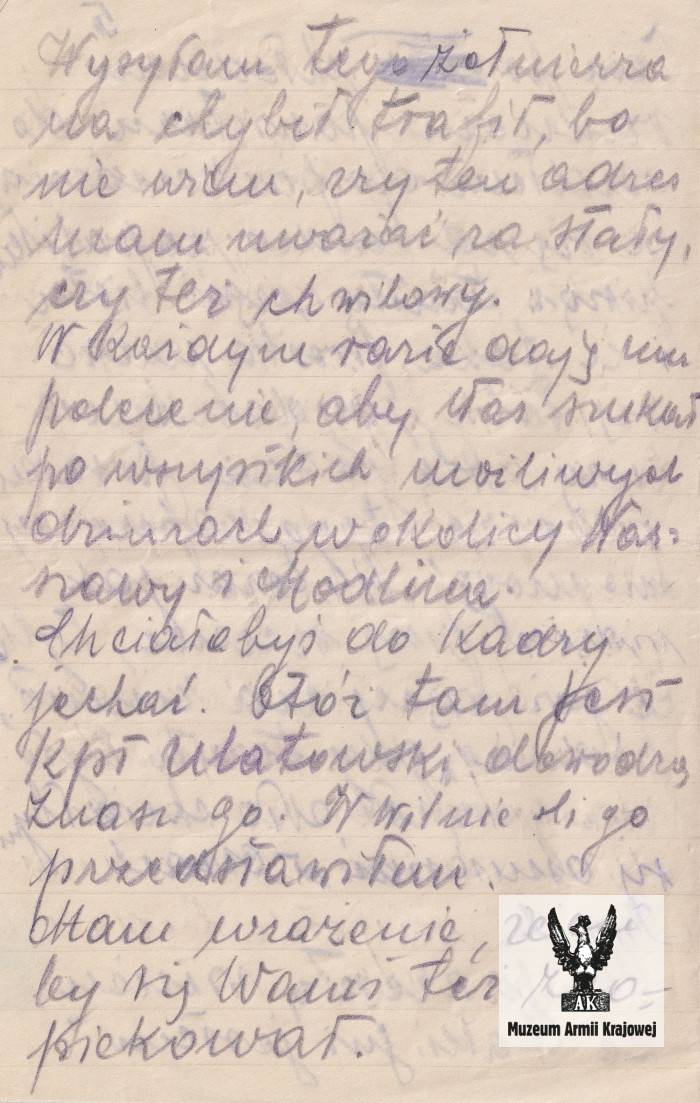 Wysyłam tego żołnierza
na chybił trafił, bo
nie wiem, czy ten adres
mam uważać za stały,
czy też chwilowy.
W każdym razie daję mu
polecenie, aby Was szukał
po wszystkich możliwych
dziurach w okolicy War=
szawy i Modlina.
Chciałabyś do Kadry
jechać. Otóż tam jest
kpt Ulatowski, dowódzca
Znasz go. W Wilnie Ci go
przedstawiłem.
Mam wrażenie,
by się Wami też
piekował.
AK
Muzeum Armii Krajowej